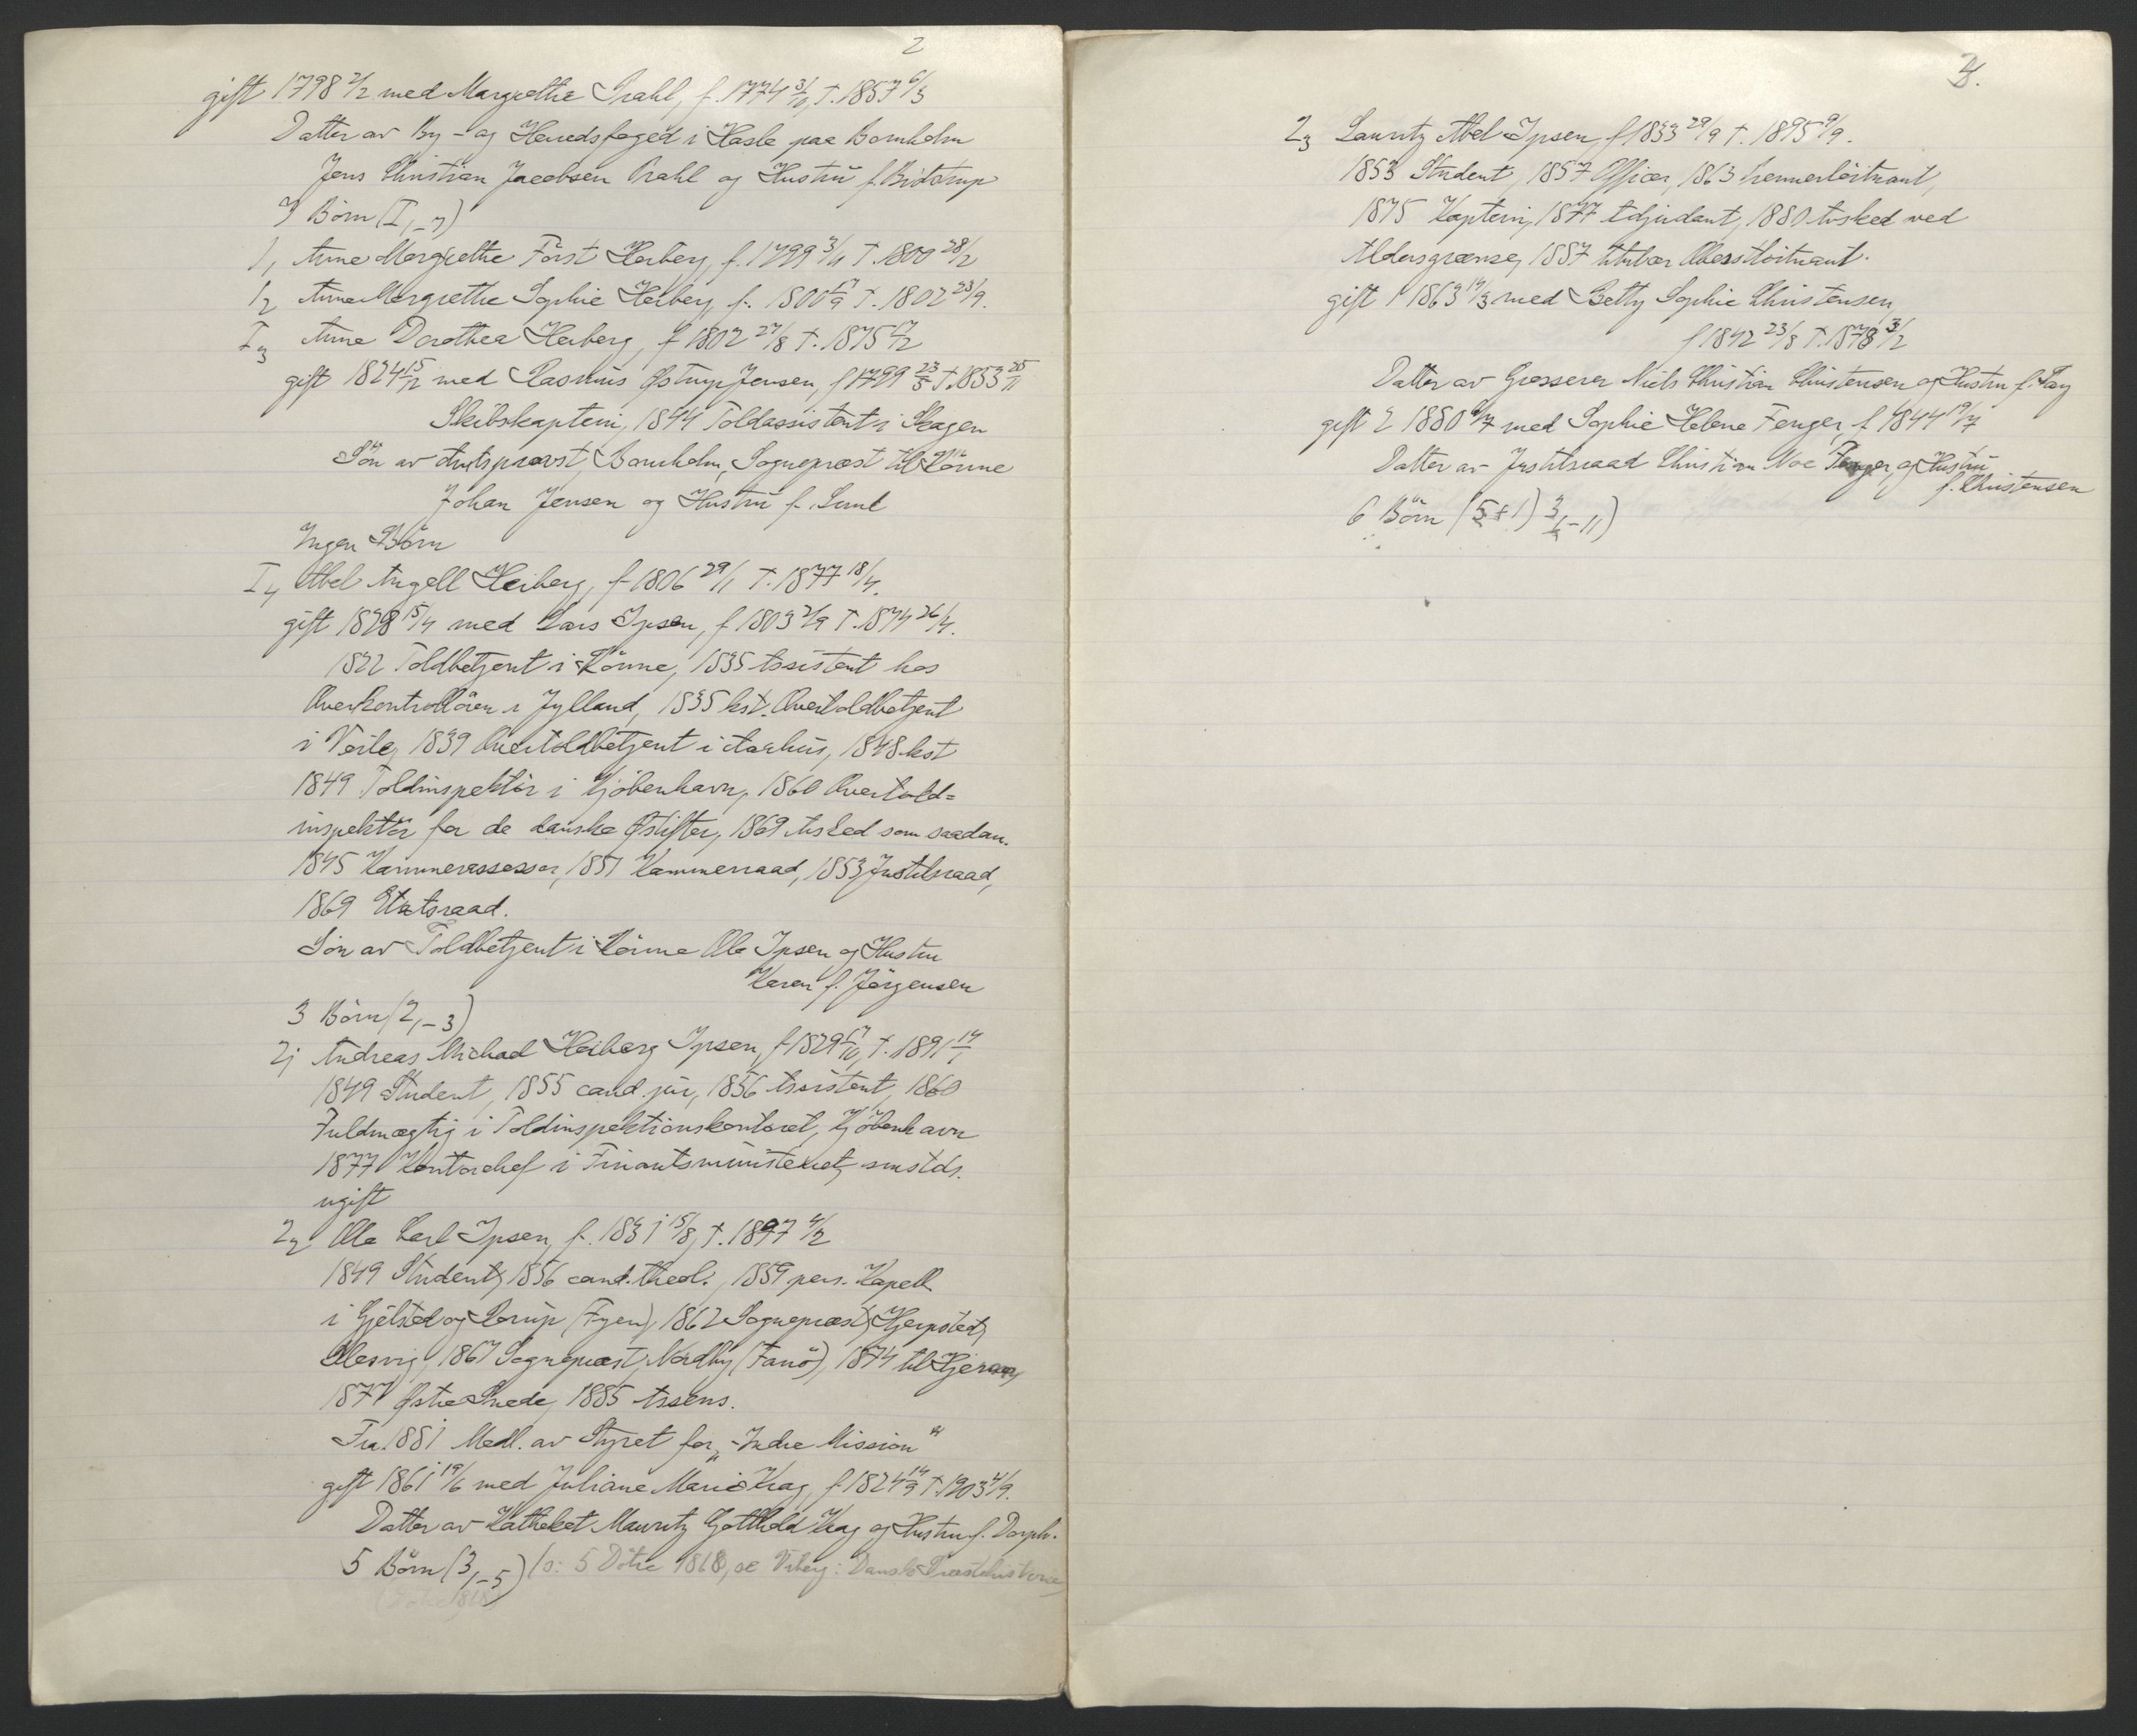 2
gift 1798 2/2 med Margrethe Prahl, f. 1774 3/10, †. 1857 6/3
Datter av By- og Herredsfoged i Hasle paa Bornholm
Jens Christian Jacobsen Prahl og Hustru f.
Börn (I,
1, Anne Margrethe Först Heiberg, f. 1799 3/11 †. 1800 28/2
I2 Anne Margrethe Sophie Heiberg, f. 1800 17/9 †. 1802 23/9.
I3 Anne Dorothea Heiberg, f 1802 27/8 †. 1875 17/2
gift 1824 15/12 med Rasmus Østrup Jensen, f 1799 23/5 †. 1853 25/11
Skibskaptein, 1844 Toldassistent i Skagen
Sön av Amtsprovst, Bornholm, Sogneprest til Rönne
Johan Jensen og Hustru f.
Ingen Börn
I4 Abel Angell Heiberg, f 1806 29/1 †. 1877 18/4.
gift 1828 15/4 med Lars Ipsen, f 1803 2/9 †. 1874 26/4.
1822 Toldbetjent i Rönne, 1835 Assistent hos
Overkontrollören i Jylland, 1835 kst. Overtoldbetjent
i Veile, 1839 Overtoldbetjent i Aarhus, 1848 kst
1849 Toldinspektör i Kjöbenhavn, 1860 Overtold=
inspektör for de danske Østifter, 1869 Avsked som saadan.
1845 Kammerassessor, 1851 Kammerraad, 1853 Justitsraad,
1869 Etatsraad.
Sön av Toldbetjent i Rönne Ole Ipsen og Hustru
Karen f. Jörgensen
3 Börn (2,-3)
21 Andreas Michael Heiberg Ipsen, f 1829 17/10, †. 1891 14/1
1849 Student, 1855 cand. jur, 1856 Assistent, 1860
Fuldmægtig i Toldinspektionskontoret, Kjöbenhavn
1877 Kontorchef i Finantsministeriet, smstds.
ugift
22 Ole Carl Ipsen, f. 1831 15/8, †. 1897 4/2
1849 Student, 1856 cand. theol., 1859 pers. Kapell
i Gjelsted og Rörup (Fyen), 1862 Sogneprest, Hjerpsted,
Slesvig, 1867 Sogneprest, Nordby (Fanö), 1874 til
1877 Østre Snede, 1885 Assens.
Fra 1881 Medl. av Styret for „Indre Mission"
gift 1861 19/6 med Juliane Marie Krag, f 1824 14/9 †. 1903 4/9.
Datter av Katheket Mauritz Gotthold Krag og Hustru f. Dorph.
5 Börn (3,-5) (o: 5 Dötre 1868, se Wiberg: Dansk Prestehistorie)
3.
23 Lauritz Abel Ipsen, f 1833 29/9 †. 1895 9/9.
1853 Student, 1857 Officer, 1863 Premierlöitnant,
1875 Kaptein, 1877 Adjudant, 1880 Avsked ved
Aldersgrænse, 1887 titulær Oberstlöitnant.
gift 1 1863 19/3 med Betty Sophie Christensen,
f 1842 23/8 †. 1878 3/2
Datter av Grosserer Niels Christian Christensen og Hustru f.
gift 2 1880 9/7 med Sophie Helene Fenger, f 1844 19/7
Datter av Justitsraad Christian Noe Fenger, og Hustru
f. Christensen
6 Börn (5+1) 3 6-11)